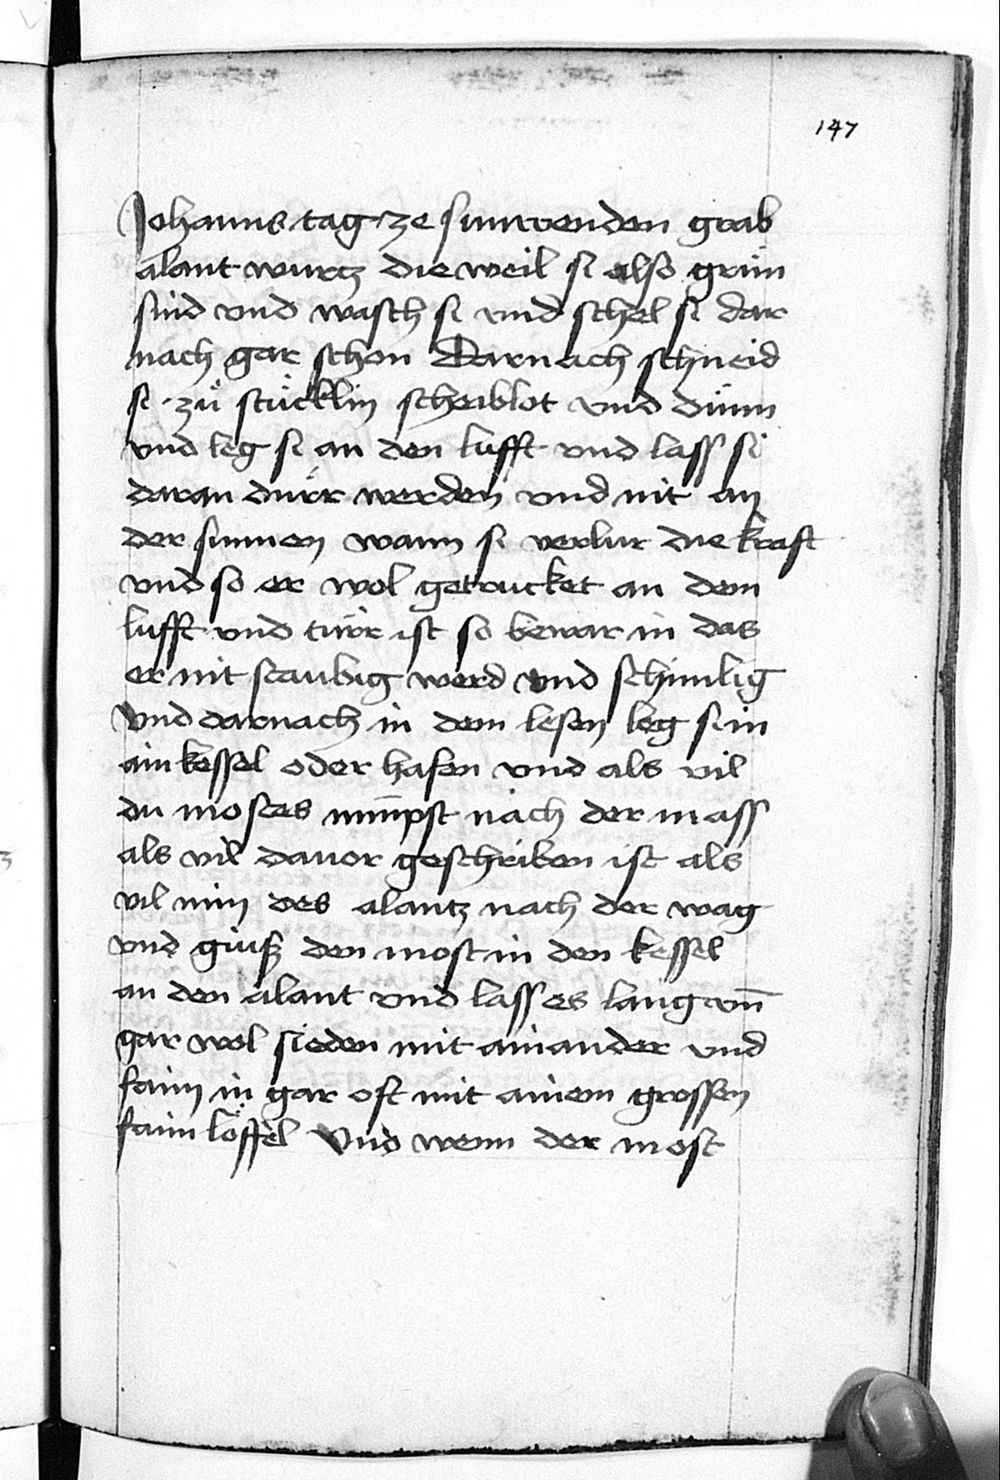 147
Johanns tag ze sunwenden grab
alant wurtz die weil si also grün
sind vnd wasch si vnd schel si dar
nach gar schon Darnach schneid
si zů stücklin scheiblot vnd dünn
vnd leg si an den lufft vnd lass si
daran dürr werden vnd nit an
der sunnen wann si verlur die kraft
vnd so er wol getrucket an dem
lufft vnd türr ist so bewar in das
er nit staubig werd vnd schimlig
Vnd darnach in dem lesen leg si in
ain kessel oder hafen vnd als vil
du mostes nimpst nach der mass
als vil dauor geschriben ist als
vil nim des alantz nach der wag
vnd giuß den most in den kessel
an den alant vnd lass es langcum̄
gar wol sieden mit ainander vnd
faim in gar oft mit ainem grossen
faim löffel Vnd wenn der most